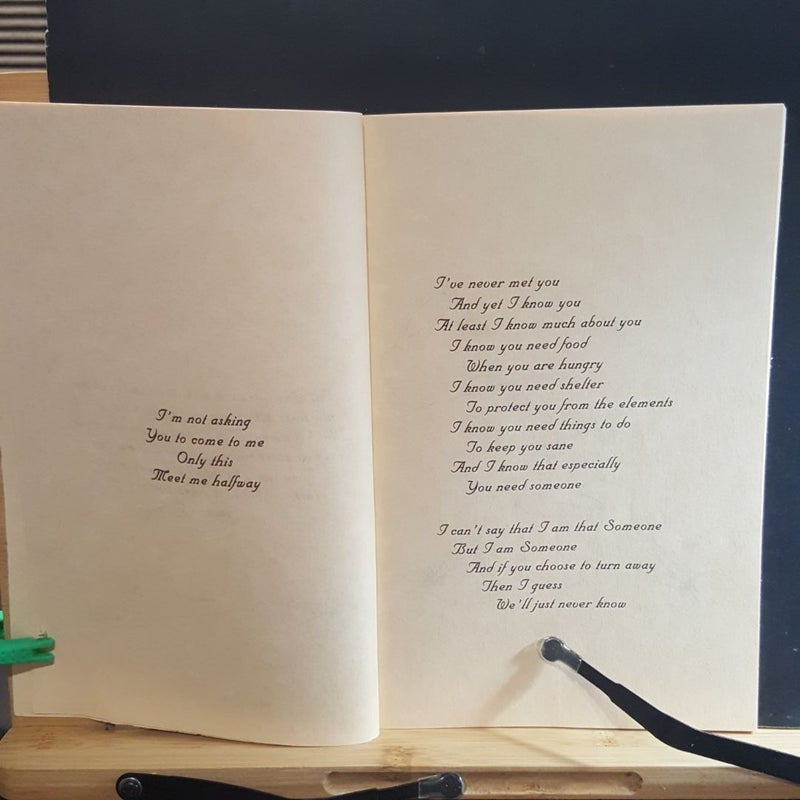 I'm not asking
You to come to me
Only this
Meet me halfway
I've never met you
And yet I know you
At least I know much about you
I know you need food
When you are hungry
I know you need shelter
To protect you from the elements
I know you need things to do
To keep you sane
And I know that especially
You need someone
I can't say that I am that Someone
But I am Someone
And if you choose to turn away
Then I guess
We'll just never know